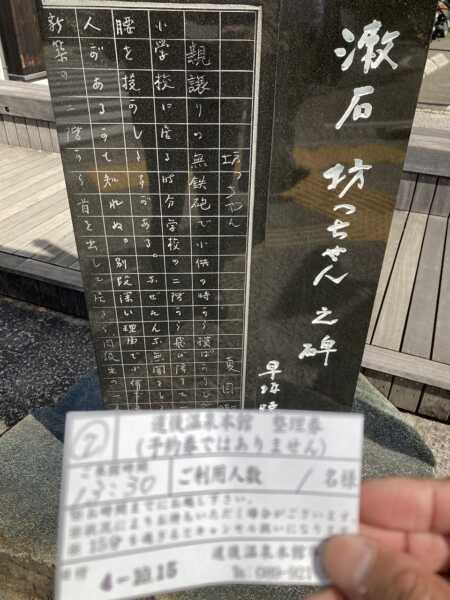 漱石 坊っちやん之碑
早坂
坊っちやん
夏目
親譲りの無鉄砲で小供の時から損ばかり
小学校に居る時分学校の二階から飛び降りて
腰を抜かした事がある。なぜそんな無闇をした
人があるかも知れぬ。別段深い理由でも
新築の二階から首を出して居たら同級生の一
② 道後温泉本館 整理券
(予約券ではありません)
ご来館時間 13:30 ご利用人数 1 名様
※お時間までにお越し下さい。
※状況によりお待ちいただく場合がございます。
※15分を過ぎるとキャンセル扱いになります
道後温泉本館
日付 4-10.15 ℡ 089-921